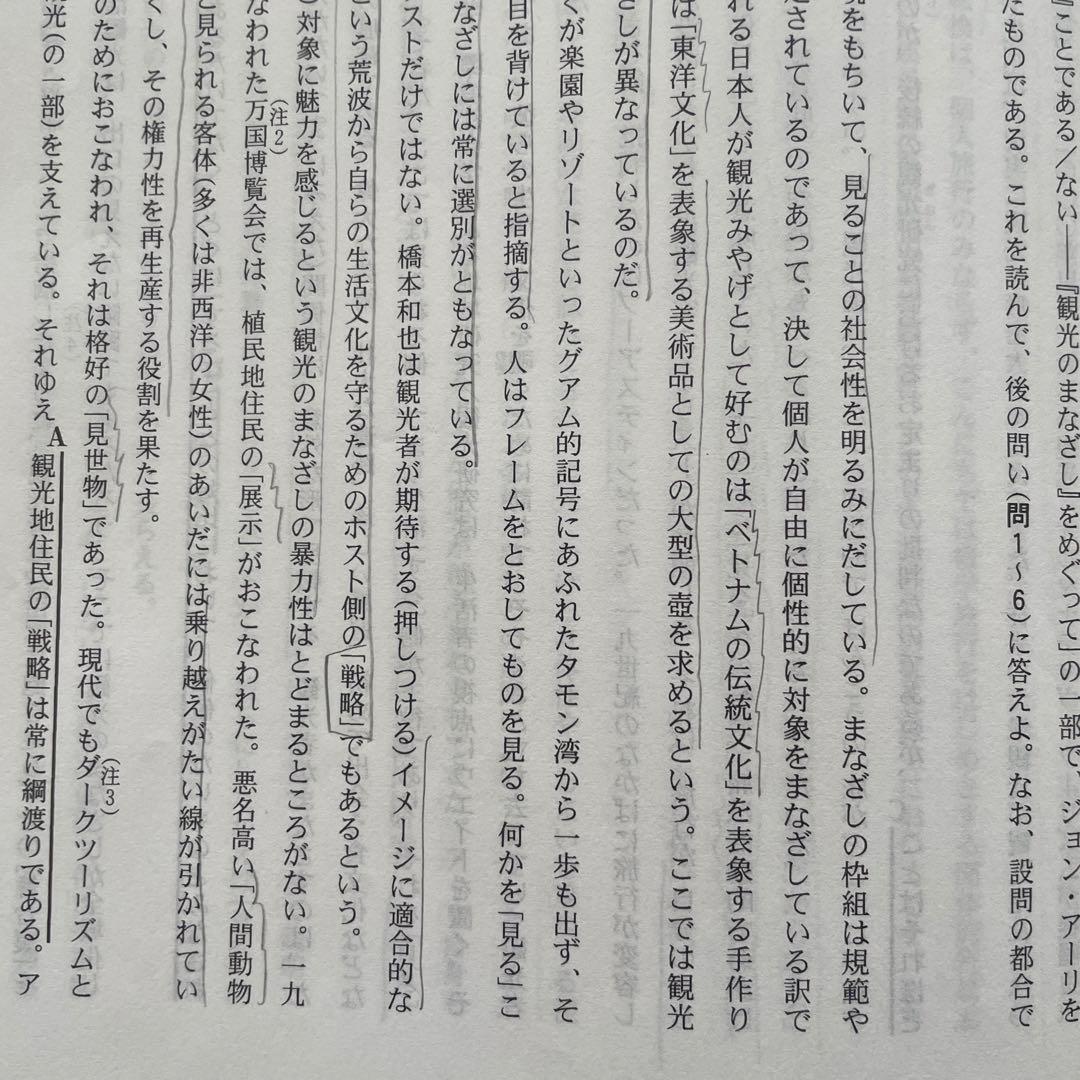 『ことである／ない――『観光のまなざし』をめぐって」の一部で、ジョン・アーリを
たものである。これを読んで、後の問い(問1～6)に答えよ。なお、設問の都合で
をもちいて、見ることの社会性を明るみにだしている。まなざしの枠組は規範や
されているのであって、決して個人が自由に個性的に対象をまなざしている訳で
れる日本人が観光みやげとして好むのは「ベトナムの伝統文化」を表象する手作り
は「東洋文化」を表象する美術品としての大型の壺を求めるという。ここでは観光
ざしが異なっているのだ。
くが楽園やリゾートといったグアム的記号にあふれたタモン湾から一歩も出ず、そ
目を背けていると指摘する。人はフレームをとおしてものを見る。何かを「見る」こ
なざしには常に選別がともなっている。
ストだけではない。橋本和也は観光者が期待する(押しつける)イメージに適合的な
という荒波から自らの生活文化を守るためのホスト側の「戦略」でもあるという。
対象に魅力を感じるという観光のまなざしの暴力性はとどまるところがない。一九
なわれた万国博覧会では、植民地住民の「展示」がおこなわれた。悪名高い「人間動物
(注2)
と見られる客体(多くは非西洋の女性)のあいだには乗り越えがたい線が引かれてい
くし、その権力性を再生産する役割を果たす。
のためにおこなわれ、それは格好の「見世物」であった。現代でもダークツーリズムと
(注3)
観光(の一部)を支えている。それゆえA観光地住民の「戦略」は常に綱渡りである。ア